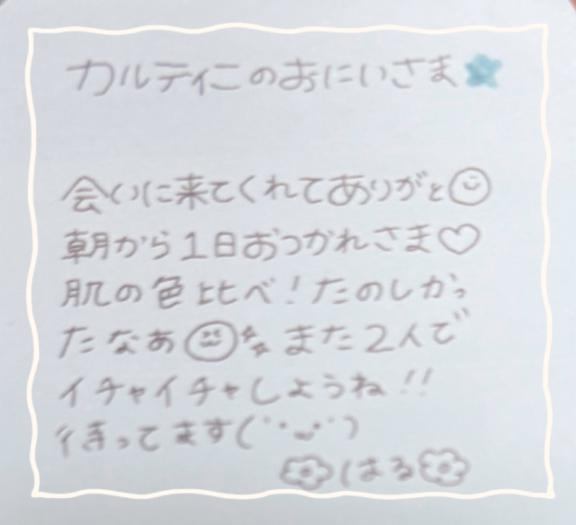 カルティニのおにいさま
会いに来てくれてありがと
朝から1日おつかれさま♡
肌の色比べ!たのしかっ
たなぁ また2人で
イチャイチャしようね!!
待ってます(˙˘˙)
はる